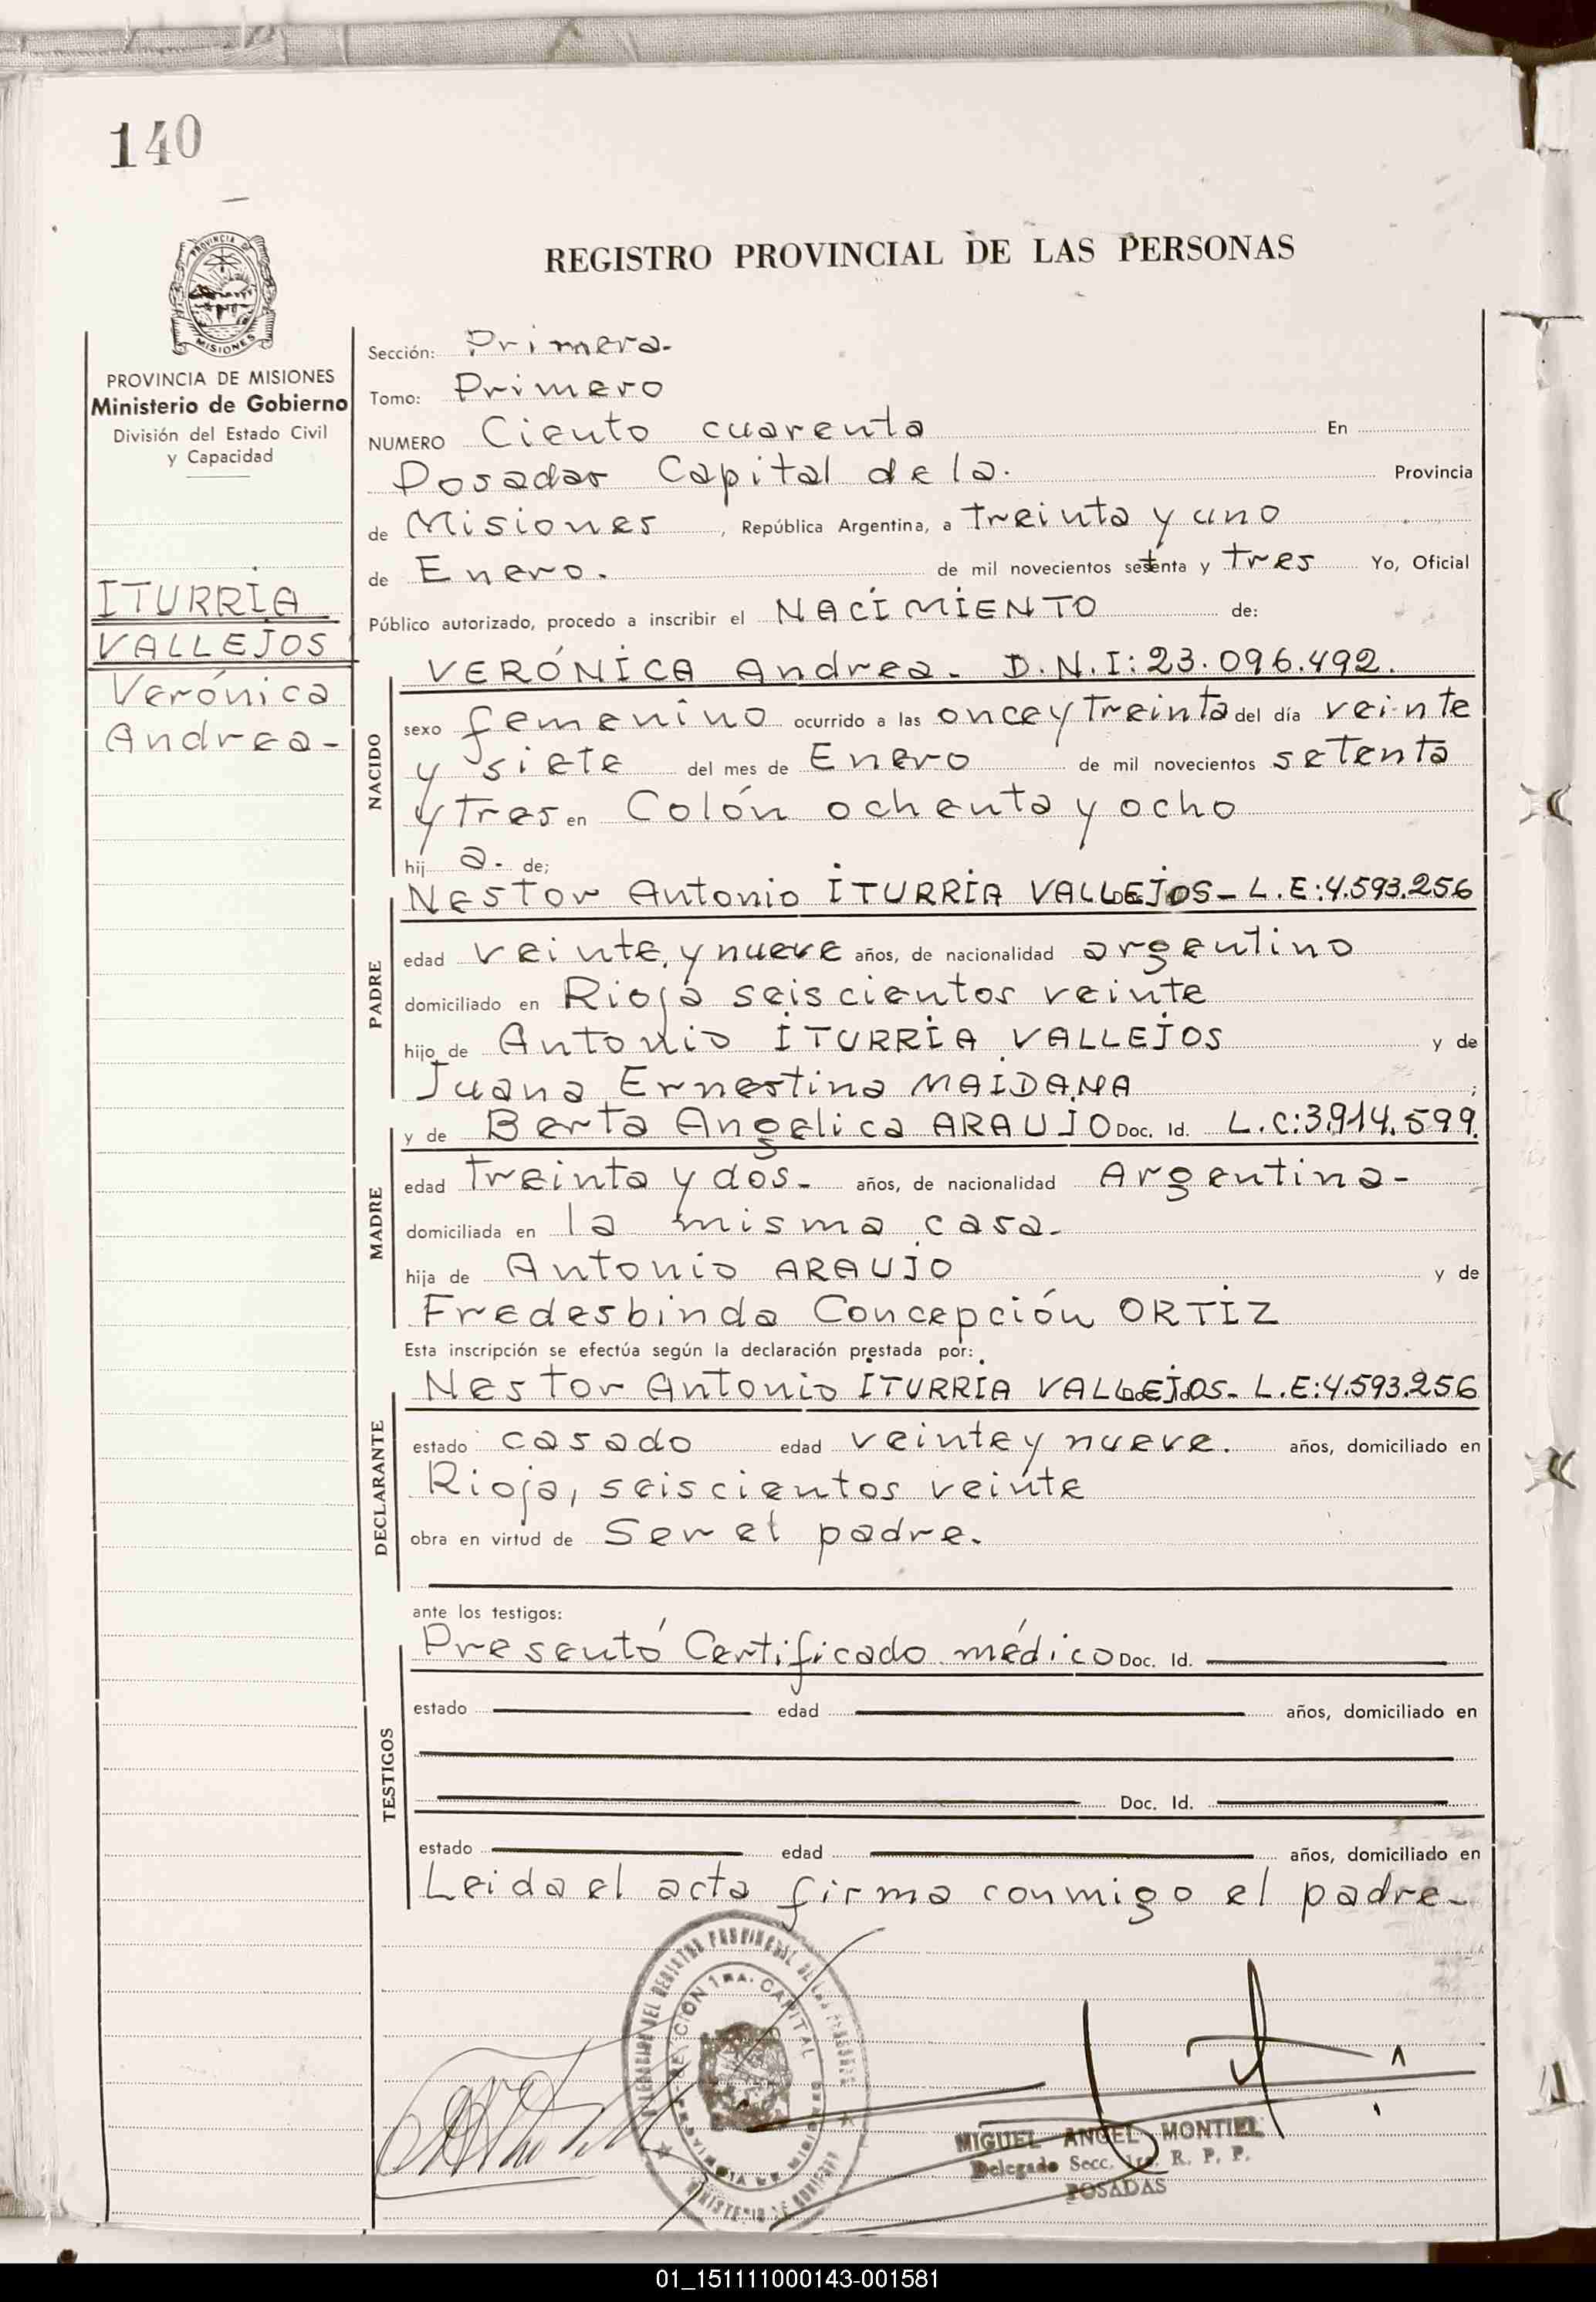 140
REGISTRO PROVINCIAL DE LAS PERSONAS
PROVINCIA DE
MISIONES
PROVINCIA DE MISIONES
Ministerio de Gobierno
División del Estado Civil
y Capacidad
ITURRIA
VALLEJOS
Verónica
Andrea-
Sección: Primera-
Tomo: Primero
NUMERO Ciento cuarenta En
Posadas Capital de la. Provincia
de Misiones, República Argentina, a treinta y uno
de Enero. de mil novecientos setenta y tres Yo, Oficial
Público autorizado, procedo a inscribir el NACIMIENTO de:
NACIDO
VERÓNICA Andrea- D.N.I: 23.096.492.
sexo femenino ocurrido a las once y treinta del día veinte
y siete del mes de Enero de mil novecientos setenta
y tres en Colón ochenta y ocho
hij a. de;
PADRE
Nestor Antonio ITURRIA VALLEJOS- L.E: 4.593.256
edad veinte y nueve años, de nacionalidad argentino
domiciliado en Rioja seiscientos veinte
hijo de Antonio ITURRIA VALLEJOS y de
Juana Ernestina MAIDANA ;
MADRE
y de Berta Angelica ARAUJO Doc. Id. L.C: 3.914.599.
edad treinta y dos- años, de nacionalidad Argentina-
domiciliada en la misma casa-
hija de Antonio ARAUJO y de
Fredesbinda Concepción ORTIZ
Esta inscripción se efectúa según la declaración prestada por:
DECLARANTE
Nestor Antonio ITURRIA VALLEJOS- L.E: 4.593.256
estado casado edad veinte y nueve. años, domiciliado en
Rioja, seiscientos veinte
obra en virtud de Ser el padre.
ante los testigos:
TESTIGOS
Presentó Certificado médico Doc. Id.
estado edad años, domiciliado en
Doc. Id.
estado edad años, domiciliado en
Leida el acta firma conmigo el padre-
SECCION 1RA. CAPITAL
PROVINCIA DE MISIONES
MIGUEL ANGEL MONTIEL
Delegado Secc. 1ra. R. P. P.
POSADAS
01_151111000143-001581